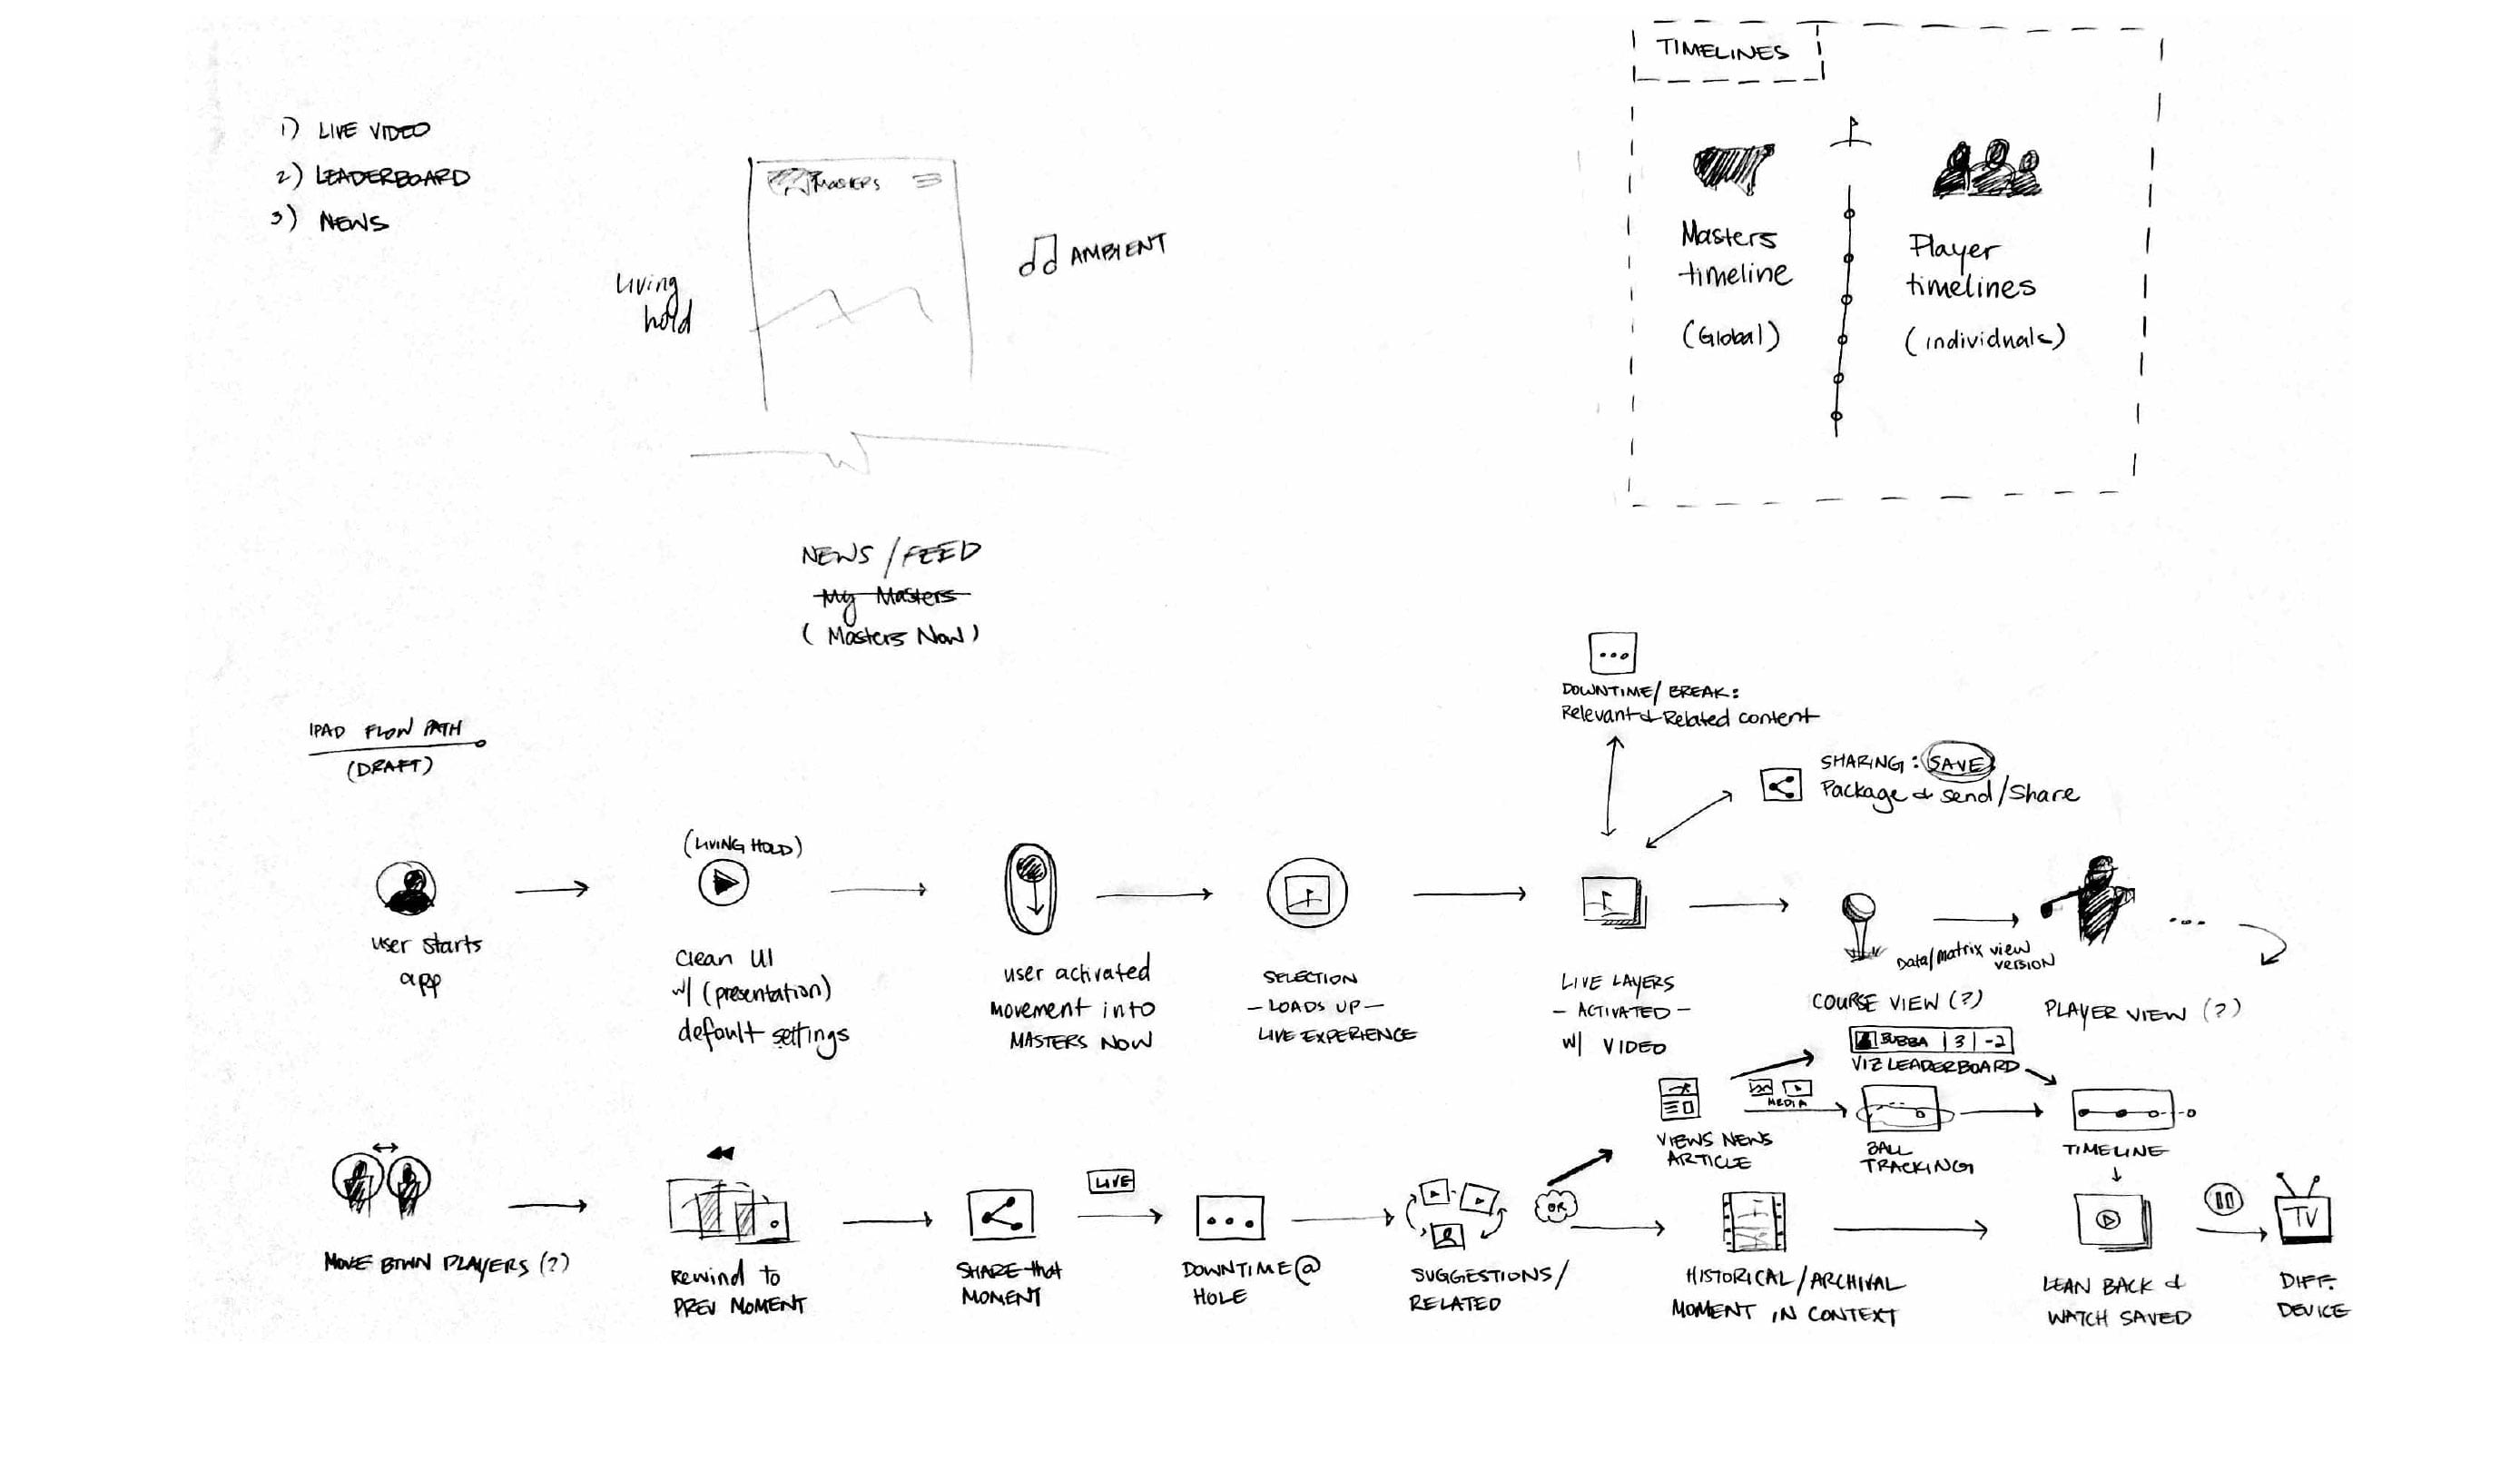 1) LIVE VIDEO
2) LEADERBOARD
3) NEWS
MASTERS
Living
hold
AMBIENT
TIMELINES
Masters
timeline
(Global)
Player
timelines
(individuals)
NEWS / FEED
My Masters
( Masters Now )
IPAD FLOW PATH
(DRAFT)
DOWNTIME / BREAK:
Relevant & Related content
SHARING: SAVE
Package & Send / Share
user starts
app
(LIVING HOLD)
Clean UI
w/ (presentation)
default settings
user activated
movement into
MASTERS NOW
SELECTION
- LOADS UP -
LIVE EXPERIENCE
LIVE LAYERS
- ACTIVATED -
w/ VIDEO
Data/matrix view
VERSION
COURSE VIEW (?)
PLAYER VIEW (?)
...
BUBBA | 3 | -2
VIZ LEADERBOARD
MEDIA
VIEWS NEWS
ARTICLE
BALL
TRACKING
TIMELINE
MOVE BTWN PLAYERS (?)
Rewind to
PREV MOMENT
SHARE that
MOMENT
LIVE
DOWNTIME @
HOLE
SUGGESTIONS /
RELATED
OR
HISTORICAL / ARCHIVAL
MOMENT IN CONTEXT
LEAN BACK &
WATCH SAVED
TV
DIFF.
DEVICE